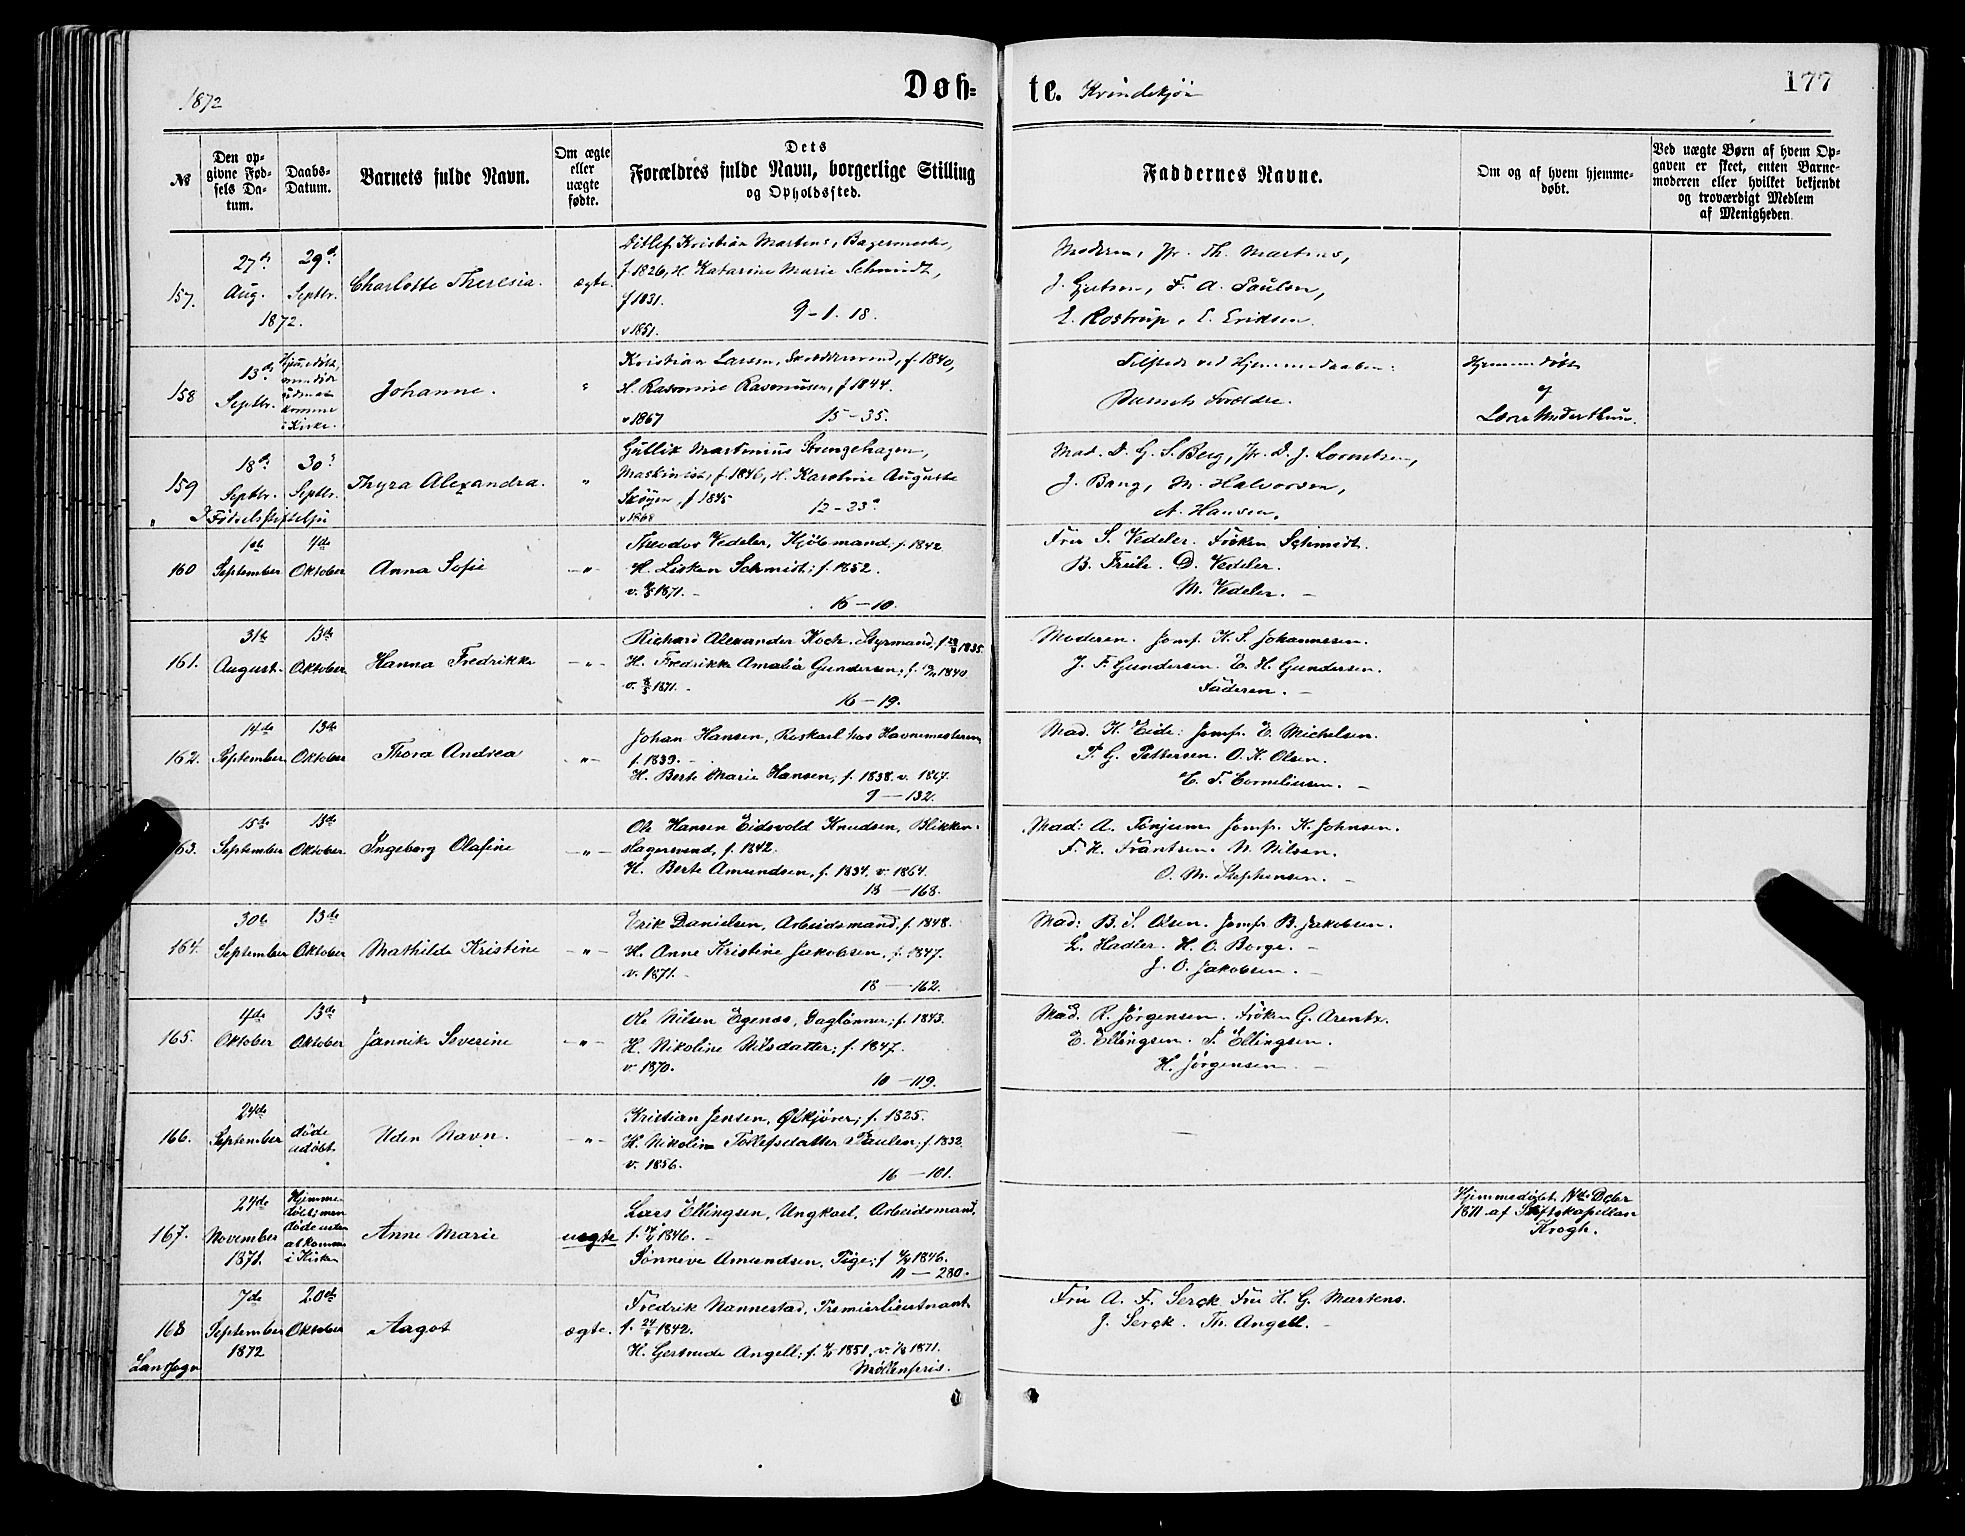 1872
Døb=
te. Kvindekjøn
177
№
Den op-
givne Fød-
sels Da-
tum.
Daabs-
Datum.
Barnets fulde Navn.
Om ægte
eller
uægte
fødte.
Dets
Forældres fulde Navn, borgerlige Stilling
og Opholdssted.
Faddernes Navne.
Om og af hvem hjemme-
døbt.
Ved uægte Børn af hvem Op-
gaven er skeet, enten Barne-
moderen eller hvilket bekjendt
og troværdigt Medlem
af Menigheden.
157.
27de
Aug.
1872.
29de
Septbr.
Charlotte Theresia.
ægte.
Ditlef Kristian Martens, Bagermester,
f 1826, H. Katarine Marie Schmidt,
f 1831.
v 1851.
9-1. 18.
Moderen, Jfr. Th. Martens,
F. A. Paulsen,
E. Rostrup, E. Eriksen.
158
13de
Septbr.
Hjemmedøbt,
komme
i Kirke.
Johanne.
"
Kristian Larsen, f. 1840,
H. Rasmine Rasmussen, f 1844.
v 1867
15-35.
Tilstede ved Hjemmedaaben:
Barnets Forældre.
Hjemmedøbt
af
159
18de
Septbr.
I Fødselsstiftelsen
30te
Septbr.
Thyra Alexandra.
"
Gullik Martinius Strengehagen,
Maskinist, f. 1846, H. Karoline Auguste
f 1845
v 1868
12-23a
Mad. D. G. S. Berg, Jfr. D. J. Lorentzen,
J. Bang, M. Halvorsen,
A. Hansen.
160
1ste
September
4de
Oktober
Anna Sofie
-"-
Theodor Vedeler, Kjøbmand, f. 1842
H. Lisken Schmidt; f. 1852.
v. 1871. -
16-10.
Fru S. Vedeler. Frøken Schmidt.
B. Friele. D. Vedeler.
M. Vedeler. -
161.
31te
August.
13de
Oktober
Hanna Fredrikke
-"-
Richard Alexander Koch. Styrmand, f. 1835.
H. Fredrikke Amalia Gundersen; f. 1840
v. 1871. -
16-19.
Moderen. Jomf. K. S. Johannesen.
J. F. Gundersen. E. H. Gundersen.
Faderen. -
162.
14de
September
13de
Oktober
Thora Andrea
-"-
Johan Hansen, Roskarl hos Havnemesteren
f. 1839. -
H. Berte Marie Hansen, f. 1838. v. 1867.
9-132.
Mad. K. Eide: Jomfr. E. Michelsen.
P. G. Pettersen. O. K. Olsen.
E. T. Corneliussen. -
163.
15de
September
13de
Oktober
Ingeborg Olafine
-"-
Ole Hansen Eidsvold Knudsen, Blikken-
slagersvend, f. 1842.
H. Berte Amundsen, f. 1834. v. 1864.
18-168.
Mad: A. Tønjum. Jomfr. K. Johnsen.
F. H. Frantsen. N. Nilsen.
O. M. Stephensen. -
164.
30te
September
13de
Oktober
Mathilde Kristine
-"-
Erik Danielsen, Arbeidsmand, f. 1848.
H. Anne Kristine Jakobsen, f. 1847.
v. 1871. -
18-162.
Mad: B. S. Olsen. Jomfr B. Jakobsen.
L. Hadler. H. O. Borge. -
J. O. Jakobsen. -
165.
4de
Oktober
13de
Oktober
Jannike Severine
-"-
Ole Nilsen Egenæs, Daglønner; f. 1843.
H. Nikoline Nilsdatter; f. 1847.
v. 1870.
10-119.
Mad. R. Jørgensen. Frøken G. Arentz.
E. Ellingsen. S. Ellingsen.
H. Jørgensen. -
166.
24de
September
døde
udøbt.
Uden Navn.
-"-
Kristian Jensen, Ølkjører; f. 1825.
H. Nikoline Tollefsdatter Paulen; f. 1832.
v. 1856.
16-101.
167.
24de
November
1871.
Hjemme-
døbt; men
døde uden
at komme
i Kirken
Anne Marie
uægte
Lars Ellingsen, Ungkarl, Arbeidsmand,
f. 1846. -
Sønneve Amundsen, Pige; f 1846.
11-280.
Hjemmedøbt Nde Dcbr
1871 af Stiftskapellan
Krogh.
168
Landsogn
7de
September
1872
20de
Oktober
Aagot
ægte.
Fredrik Nannestad, Premierlieutnant
f. 1842.
H. Gertrude Angell; f. 1851, v. 1871.
Møllenpris.
Fru A. F. Serck Fru H. G. Martens.
J. Serck. Th. Angell. -